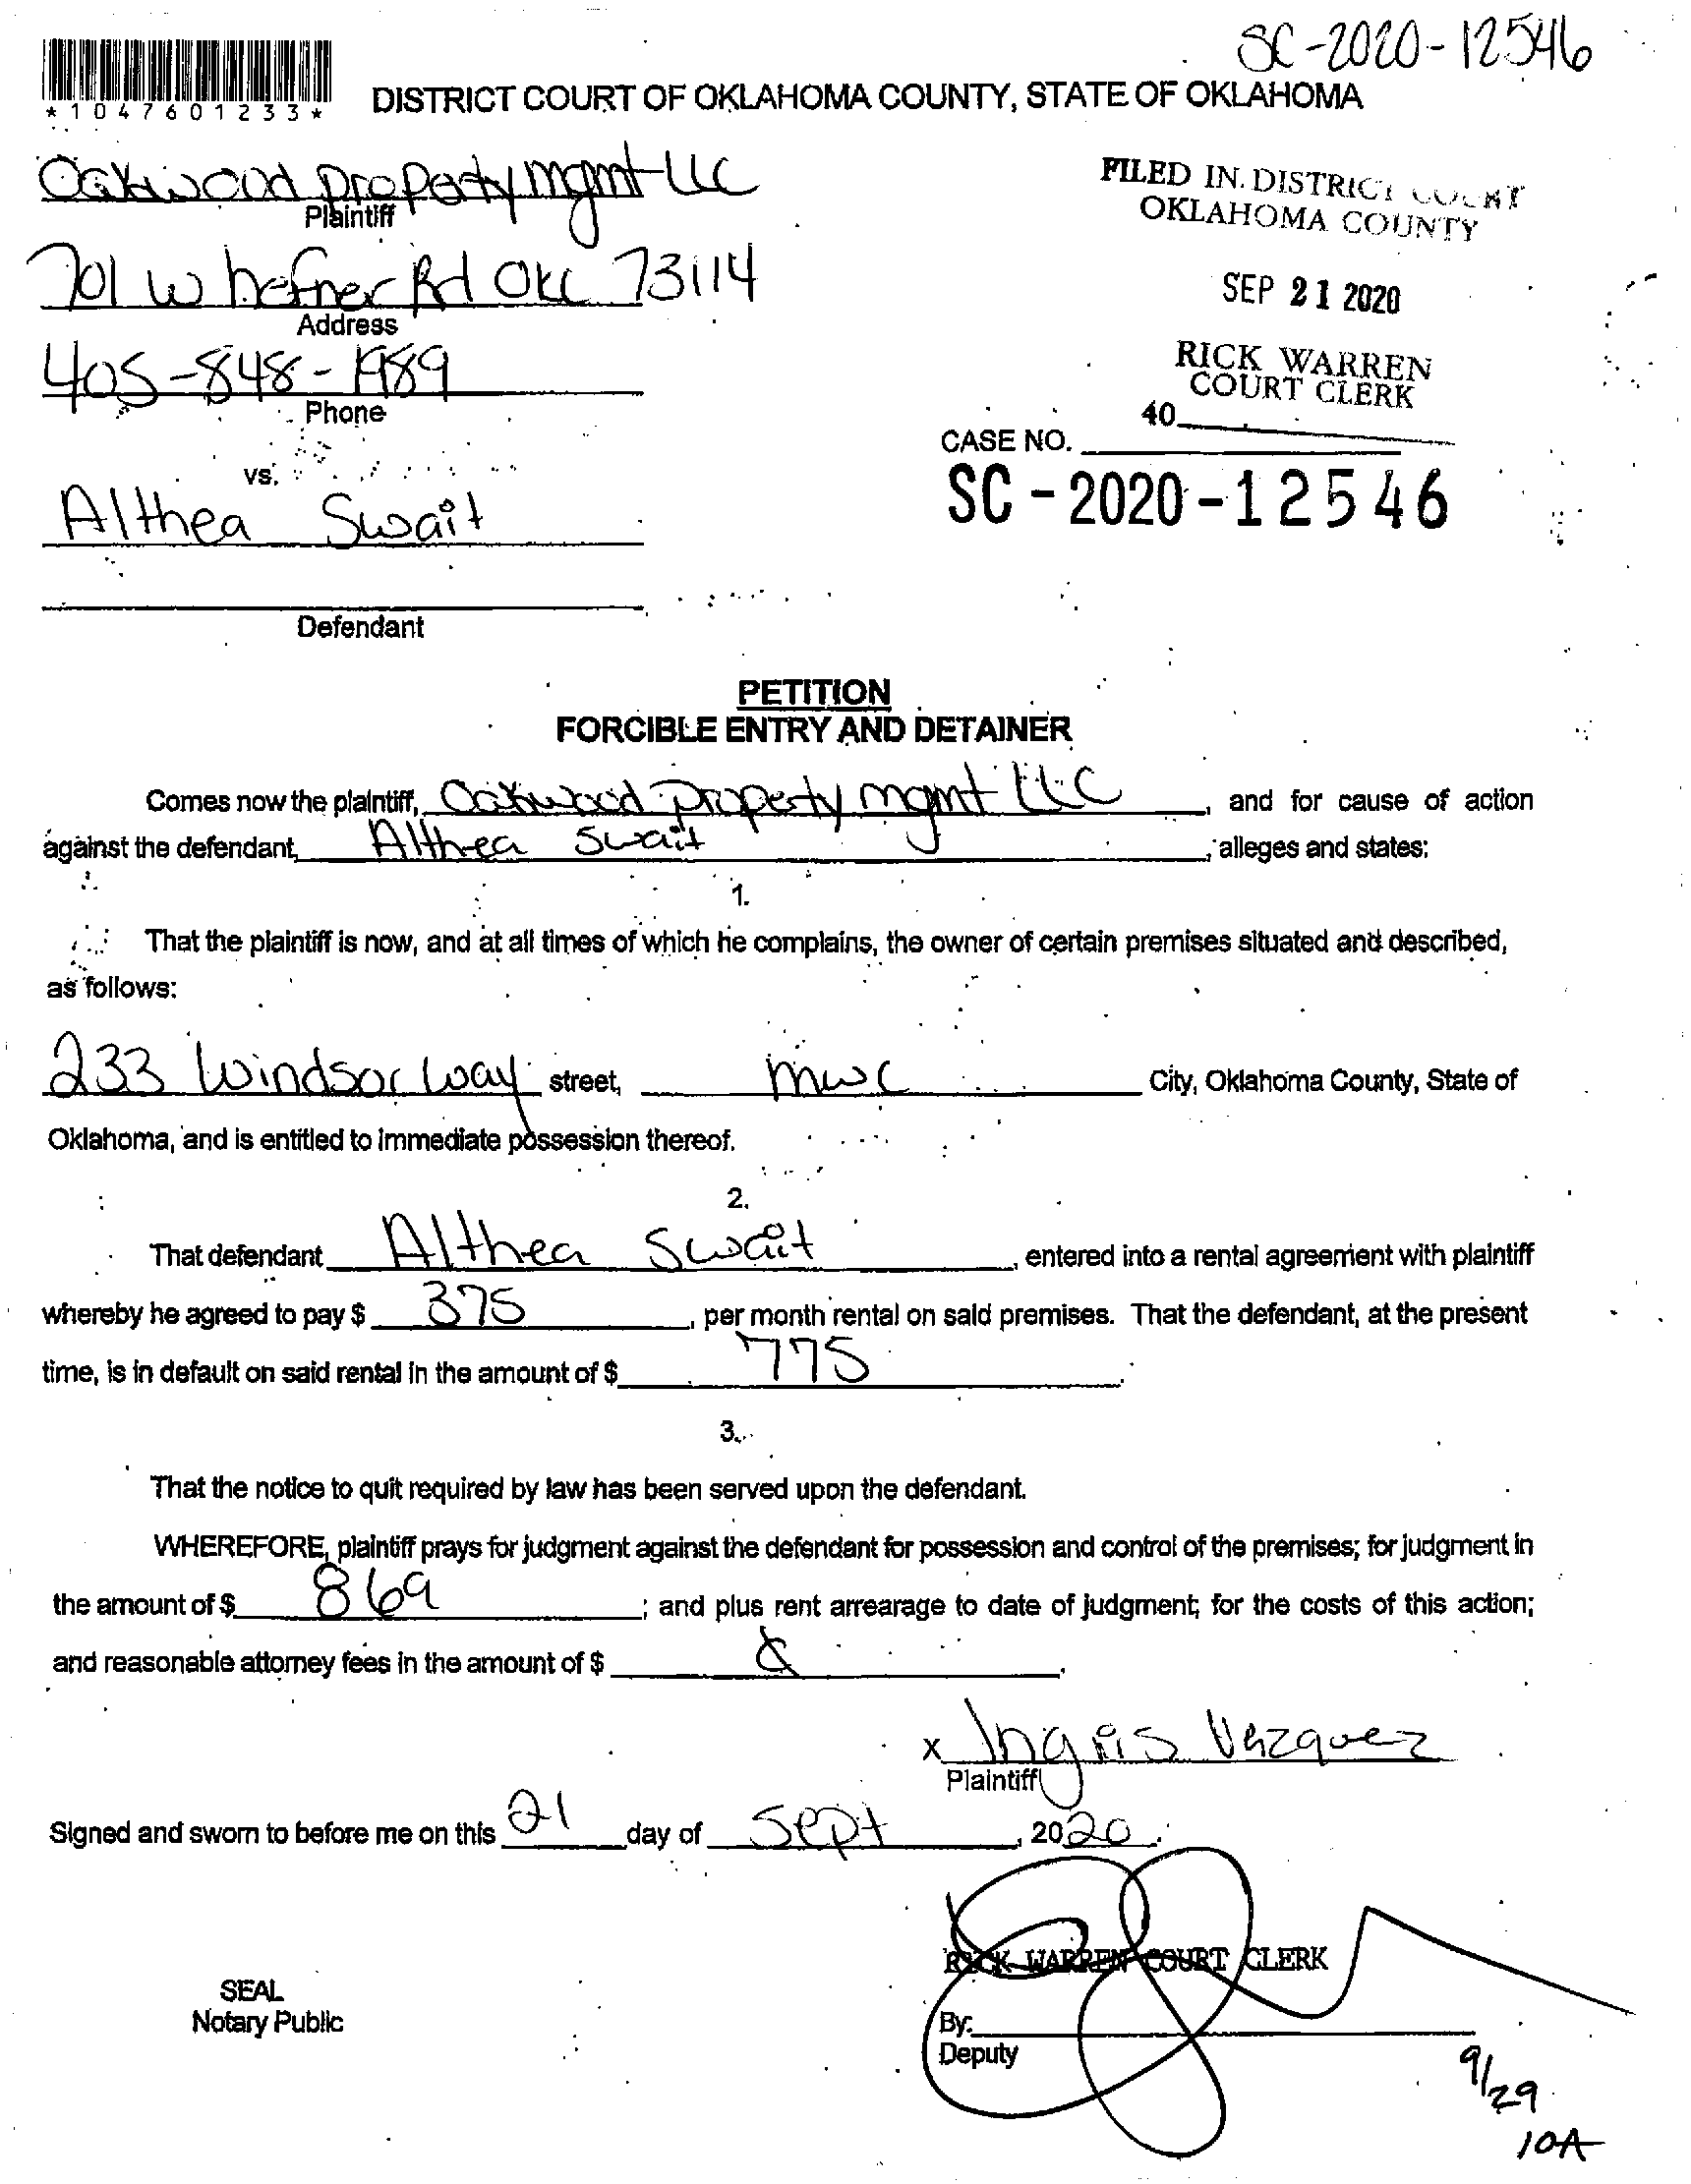 SC-2020-12546
*1047601233*
DISTRICT COURT OF OKLAHOMA COUNTY, STATE OF OKLAHOMA
Oakwood Property mgmt LLC
Plaintiff
FILED IN DISTRICT COURT
OKLAHOMA COUNTY
701 W hefner Rd OKC 73114
Address
SEP 21 2020
405-848-1989
Phone
RICK WARREN
COURT CLERK
40
CASE NO.
SC-2020-12546
vs.
Althea Swait
Defendant
PETITION
FORCIBLE ENTRY AND DETAINER
Comes now the plaintiff, Oakwood property mgmt LLC, and for cause of action
against the defendant, Althea Swait, alleges and states:
1.
That the plaintiff is now, and at all times of which he complains, the owner of certain premises situated and described,
as follows:
233 Windsor Way street, mwc City, Oklahoma County, State of
Oklahoma, and is entitled to immediate possession thereof.
2.
That defendant Althea Swait, entered into a rental agreement with plaintiff
whereby he agreed to pay $ 375, per month rental on said premises. That the defendant, at the present
time, is in default on said rental in the amount of $ 775.
3.
That the notice to quit required by law has been served upon the defendant.
WHEREFORE, plaintiff prays for judgment against the defendant for possession and control of the premises; for judgment in
the amount of $ 869; and plus rent arrearage to date of judgment; for the costs of this action;
and reasonable attorney fees in the amount of $ .
x Ingris Vazquez
Plaintiff
Signed and sworn to before me on this 21 day of Sept, 2020.
RICK WARREN COURT CLERK
SEAL
Notary Public
By:
Deputy
9/29
10A